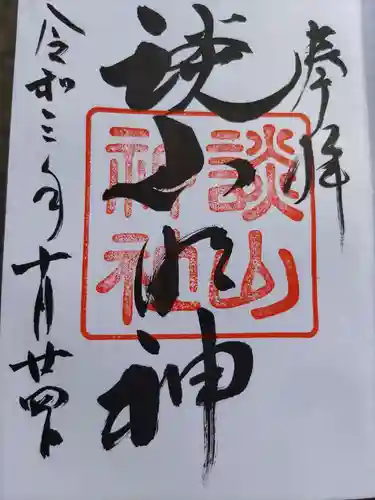 奉拝
談山大明神
談山神社
令和三年十月廿四日